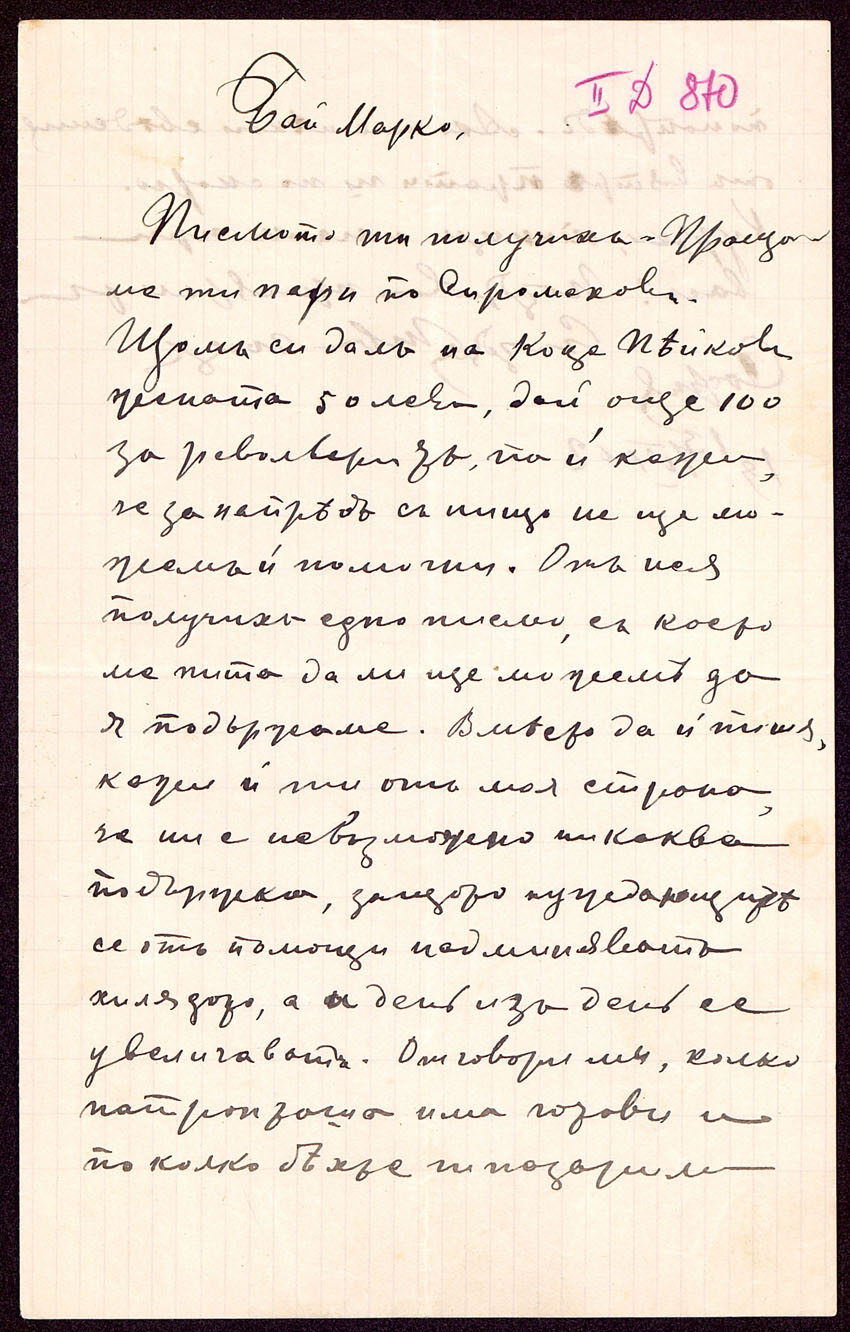 II D 870
Бай Марко,
Писмото ти получихъ. Праща
ме ти пари по Сиромахови.
Щомъ си далъ на Коца Пѣйкови
жената 50 лева, дай още 100
за револверизъ, па ѝ кажи,
че за напрѣдъ съ нищо не ще мо-
жемъ ѝ помогни. Отъ нея
получихъ едно писмо, съ което
ме пита да ли ще можемъ да
я подържаме. Вмѣсто да ѝ пиша,
кажи ѝ ти отъ моя страна,
че ни е невъзможно никаква
подържка, защото нуждающитѣ
се отъ помощи надминяватъ
хилядо, а и день изъ день се
увеличаватъ. Отговори ми, колко
патронзаша има готови и
по колко бѣхте ги пазарили